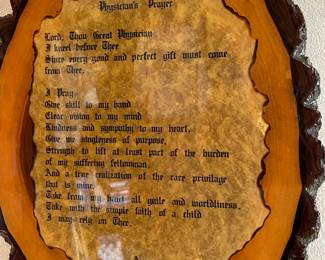 Physician's Prayer
Lord, Thou Great Physician
I kneel before Thee
Since every good and perfect gift must come
from Thee.
I Pray
Give skill to my hand
Clear vision to my mind
Kindness and sympathy to my heart.
Give me singleness of purpose,
Strength to lift at least part of the burden
of my suffering fellowman,
And a true realization of the rare privilage
that is mine.
Take from my heart all guile and worldliness,
Take with the simple faith of a child
I may rely on Thee.